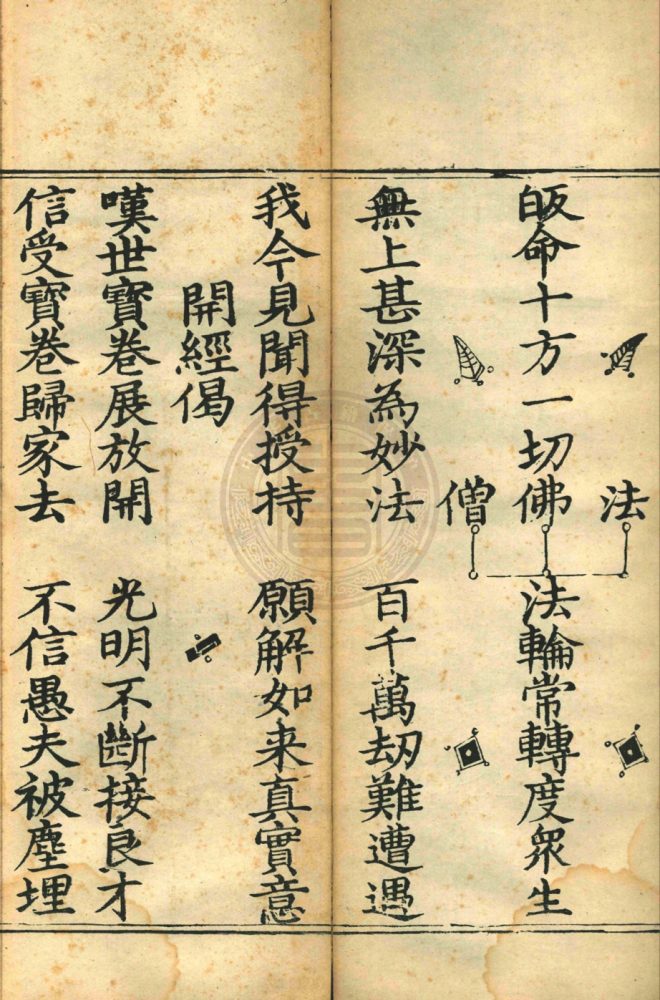 法
皈命十方一切佛 法輪常轉度衆生
僧
無上甚深為妙法 百千萬劫難遭遇
我今見聞得授持 願解如来真實意
開經偈
嘆世寶卷展放開 光明不斷接良才
信受寶卷歸家去 不信愚夫被塵埋